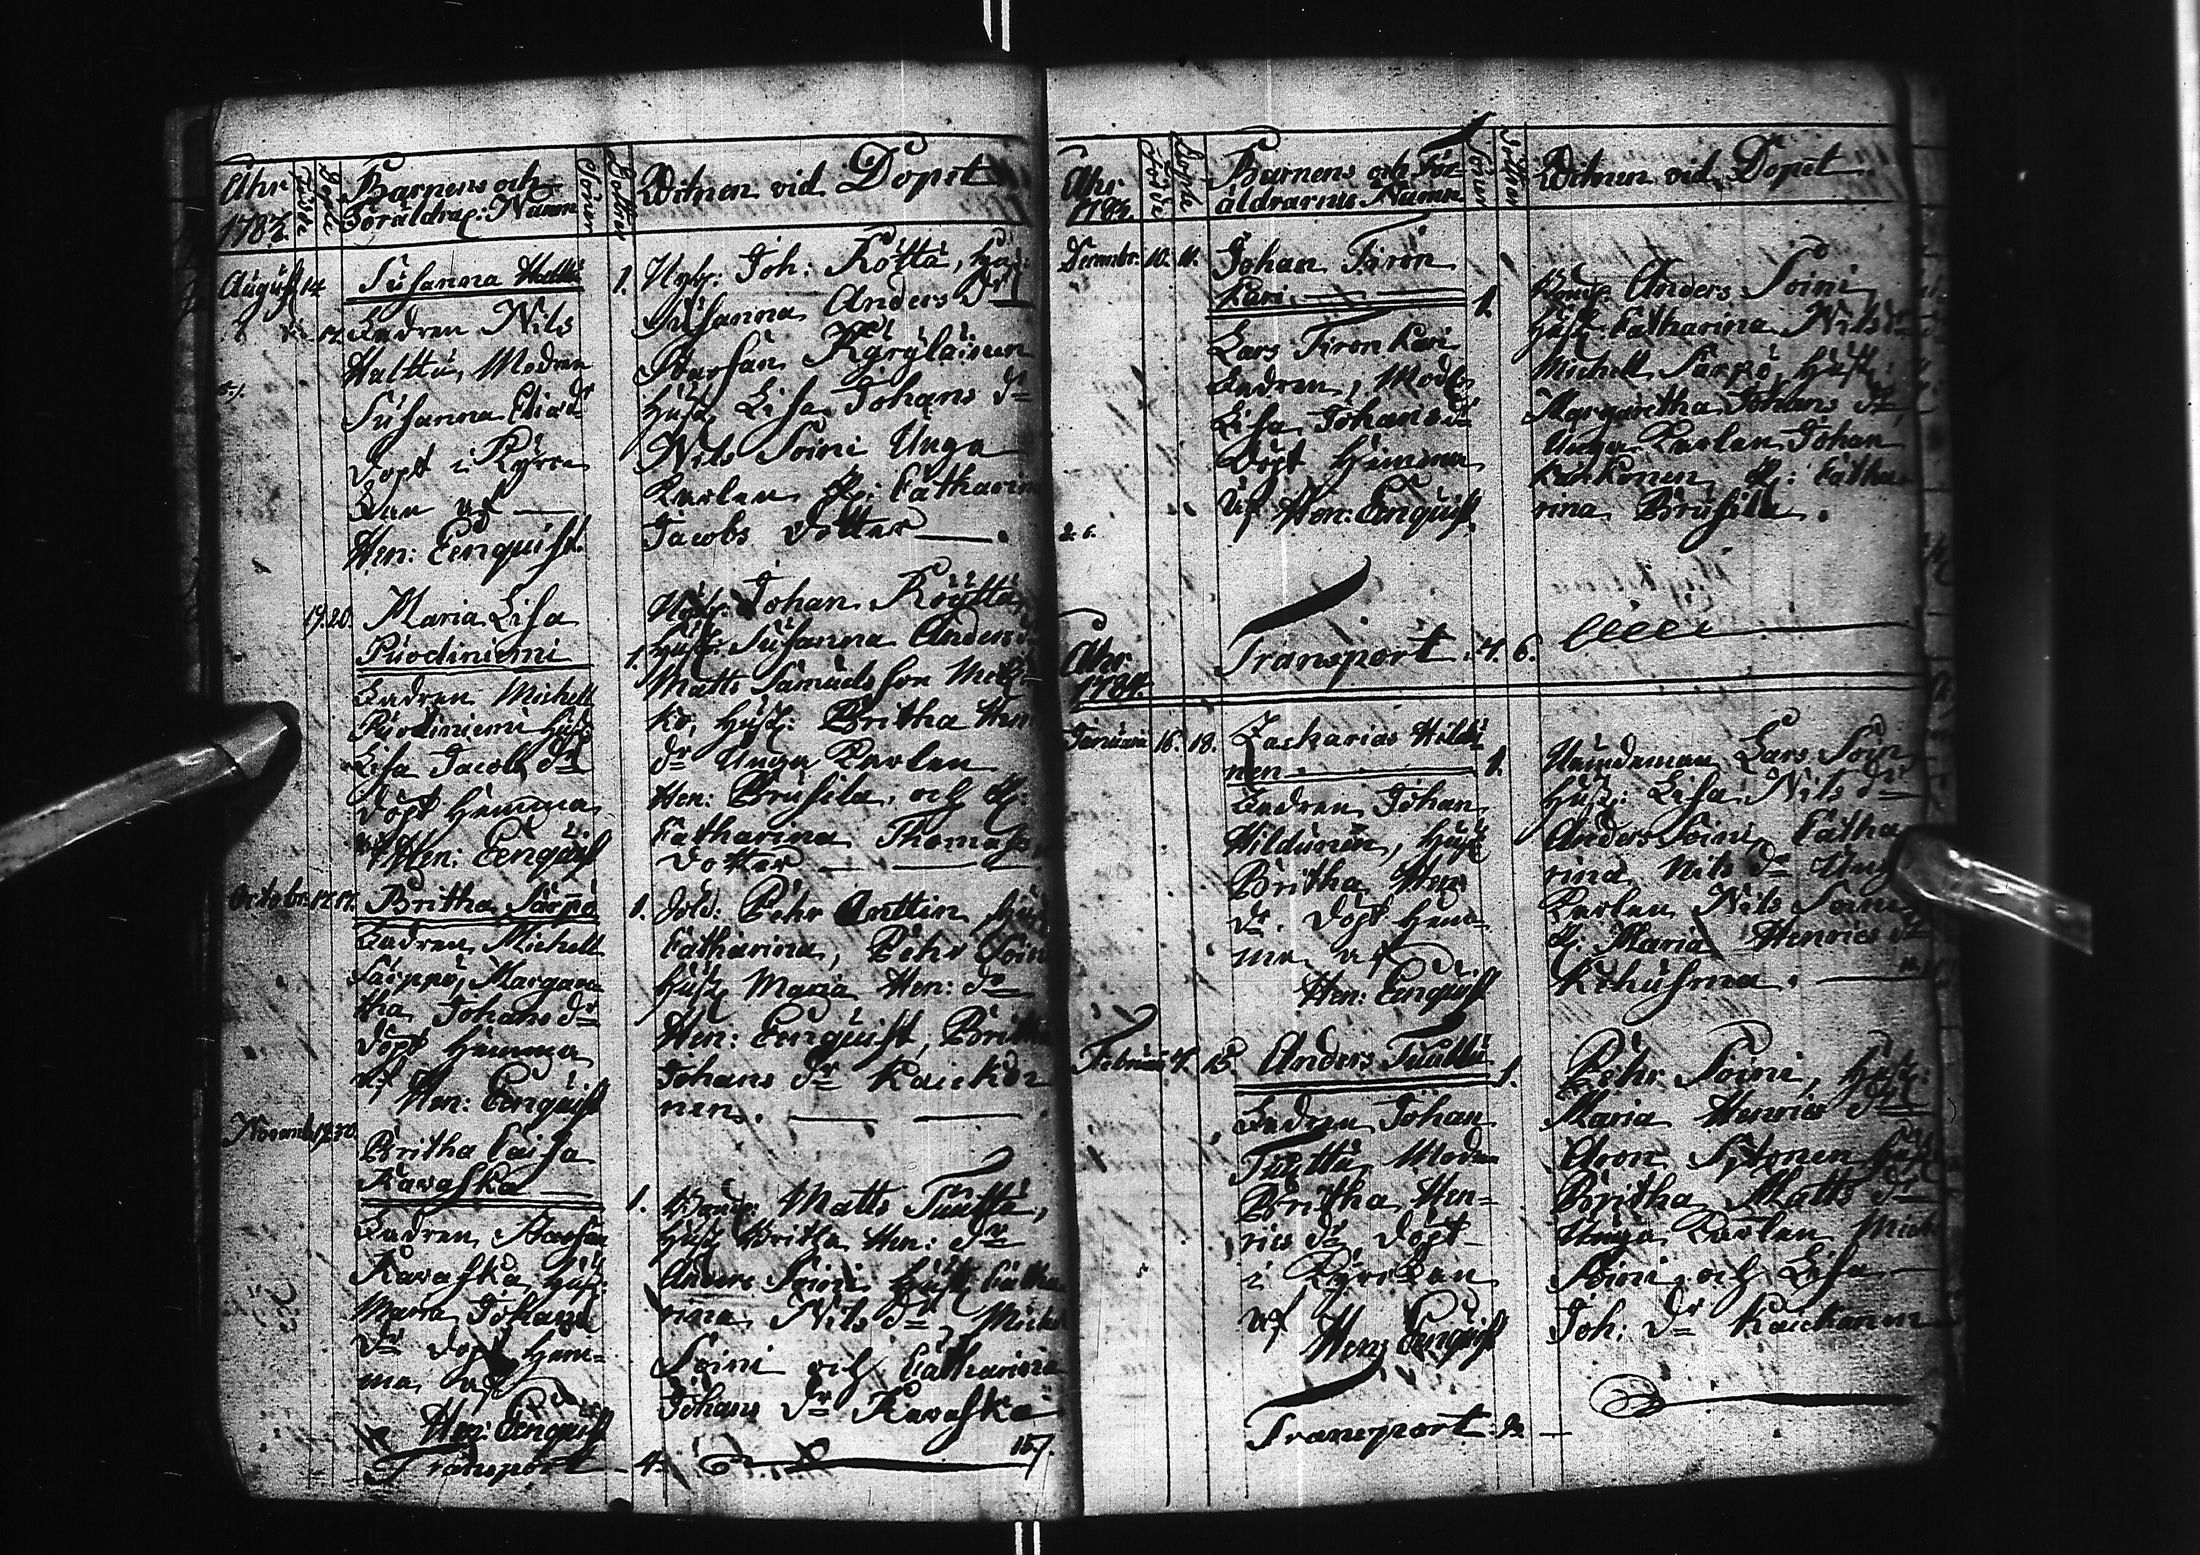 Ahr
1783.
Födde
Döpte
Barnens och
Föräldrars Namn
Söner
Döttrar
Witnen vid Dopet
August 14
Susanna Halttu
Fadren Nils
Halttu, Modren
Susanna Eliæ dr
Döpt i Kyrc
kan af
Hen: Eenquist.
1. Joh: Röttä,
Susanna Anders dr
Staffan Kyrÿläinen
hust. Lisa Johans dr
Nils Soini Unga
Karlen P: Catharina
Jacobs dotter
19. 20. Maria Lisa
Puodiniemi
Fadren Michell
Puodiniemi hust
Lisa Jacobs dr
Döpt hemma
af Hen: Eenquist
1. Johan Röyttä,
hust: Susanna Anders dr
Matts Samuels son
hust: Britha Hen:
dr Unga Karlen
Hen: Brusila, och P:
Catharina Thomas
dotter
Octobr. 12. 17. Britha Särpö
Fadren Michell
Särppö, Margare
tha Johans dr
Döpt hemma
af Hen: Eenquist
1. Sold: Pehr Anttin
Catharina, Pehr Soini
hust Maria Hen: dr
Hen: Eenquist, Britha
Johans dr Kaicko
nen.
Novemb.
Britha Caisa
Kavaska
Fadren Staffan
Kavaska, hust:
Maria Johans
dr Döpt hem=
ma af
Hen: Eenquist
1. Matts Tuittu,
hust Britha Hen: dr
Anders Soini hust Catha
rina Nils dr Michel
Soini och Catharina
Johans dr Kavaska
Transport 4.
157.
Ahr
1783.
Födde
Döpte
Barnens och För
äldrarnes Namn
Söner
Döttrar
Witnen vid Dopet
Decembr. 10. 11. Johan Firon
Kari
Lars Firon Kari
Fadren, Modr
Lisa Johans dr
Döpt hemma
af Hen: Eenquist.
1. Anders Soini
hust: Catharina Nils dr
Michell Särpö, hust
Margaretha Johans dr,
Unga Karlen Johan
Karkonen P: Catha
rina Brusila.
Transport 4. 6.
Ahr
1784.
Januari 16. 18. Zacharias Hildu
nen
Fadren Johan
Hildunen, hust
Britha Hen:
dr. Döpt hem=
ma af
Hen: Eenquist
1. Nämdeman Lars Soini
hust: Lisa Nils dr
Anders Soini Catha
rina Nils dr Unga
Karlen Nils Soini
P: Maria Henrics dr
Kehusma.
Februari 15. Anders Tuittu
Fadren Johan
Tuittu Modren
Britha Hen=
rics dr Döpt
i Kyrckan
af Hen: Eenquist
1. Pehr Soini, hust:
Maria Henrics dr
Aron Sytonen hust
Britha Matts dr
Unga Karlen Mich
Soini och Lisa
Joh: dr Kaickonen
Transport. 2.